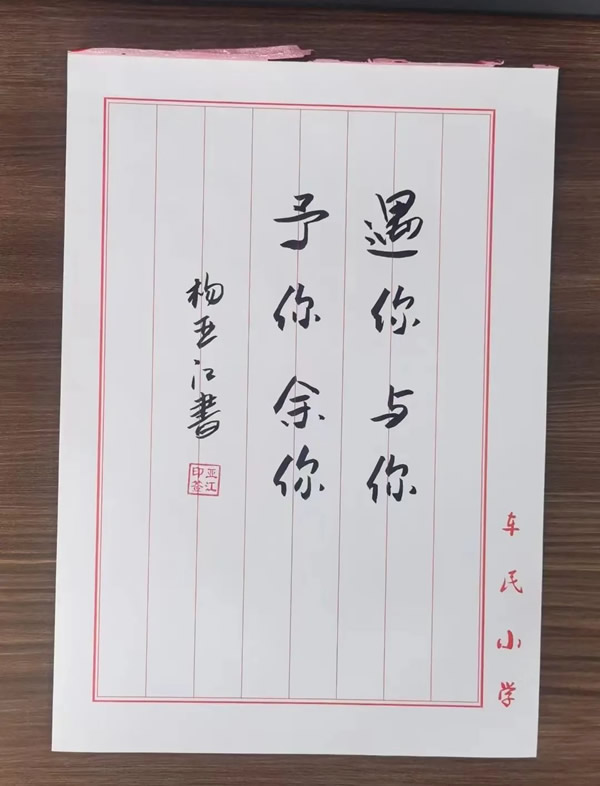 遇你与你
予你余你
杨亚江书
亚江
印签
车民小学